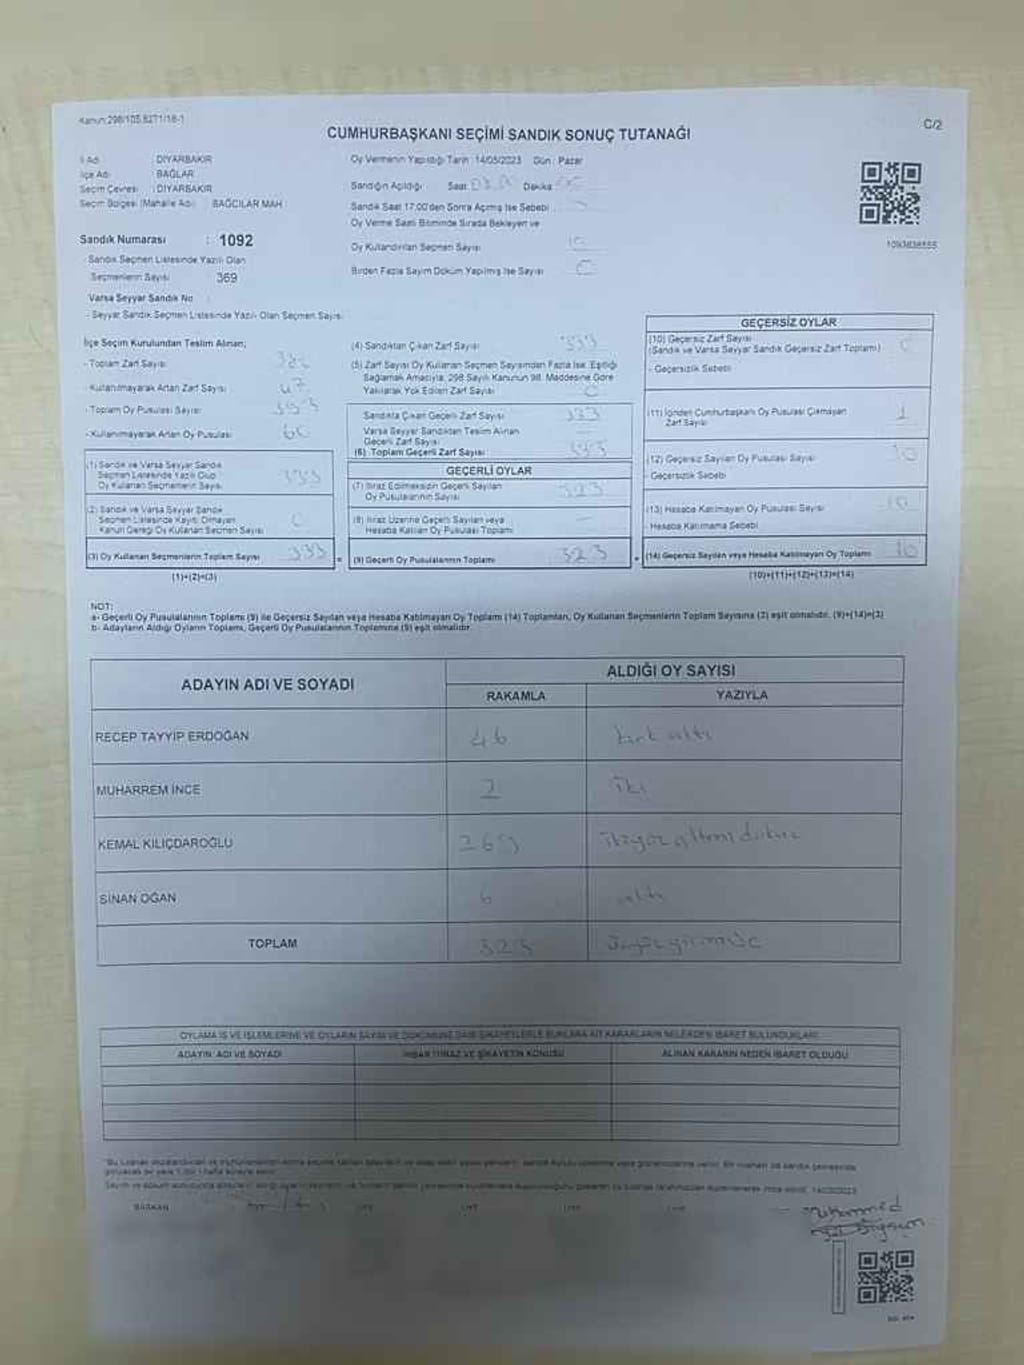 Kanun:298/105,6271/18-1
C/2
CUMHURBAŞKANI SEÇİMİ SANDIK SONUÇ TUTANAĞI
İl Adı : DİYARBAKIR
İlçe Adı : BAĞLAR
Seçim Çevresi : DİYARBAKIR
Seçim Bölgesi (Mahalle Adı) : BAĞCILAR MAH
Sandık Numarası : 1092
Sandık Seçmen Listesinde Yazılı Olan
Seçmenlerin Sayısı 369
Varsa Seyyar Sandık No
- Seyyar Sandık Seçmen Listesinde Yazılı Olan Seçmen Sayısı
Oy Vermenin Yapıldığı Tarih : 14/05/2023 Gün : Pazar
Sandığın Açıldığı Saat Dakika
Sandık Saat 17:00'den Sonra Açılmış İse Sebebi
Oy Verme Saati Bitiminde Sırada Bekleyen ve
Oy Kullandırılan Seçmen Sayısı
Birden Fazla Sayım Döküm Yapılmış İse Sayısı
İlçe Seçim Kurulundan Teslim Alınan;
- Toplam Zarf Sayısı
- Kullanılmayarak Artan Zarf Sayısı 47
- Toplam Oy Pusulası Sayısı 393
- Kullanılmayarak Artan Oy Pusulası 60
(1) Sandık ve Varsa Seyyar Sandık
Seçmen Listesinde Yazılı Olup
Oy Kullanan Seçmenlerin Sayısı 333
(2) Sandık ve Varsa Seyyar Sandık
Seçmen Listesinde Kayıtlı Olmayan
Kanun Gereği Oy Kullanan Seçmen Sayısı
(3) Oy Kullanan Seçmenlerin Toplam Sayısı 333
(1)+(2)=(3)
(4) Sandıktan Çıkan Zarf Sayısı 333
(5) Zarf Sayısı Oy Kullanan Seçmen Sayısından Fazla İse, Eşitliği
Sağlamak Amacıyla, 298 Sayılı Kanunun 98. Maddesine Göre
Yakılarak Yok Edilen Zarf Sayısı
Sandıkta Çıkan Geçerli Zarf Sayısı 333
Varsa Seyyar Sandıktan Teslim Alınan
Geçerli Zarf Sayısı
(6) Toplam Geçerli Zarf Sayısı 333
GEÇERLİ OYLAR
(7) İtiraz Edilmeksizin Geçerli Sayılan
Oy Pusulalarının Sayısı 323
(8) İtiraz Üzerine Geçerli Sayılan veya
Hesaba Katılan Oy Pusulası Toplamı
(9) Geçerli Oy Pusulalarının Toplamı 323
GEÇERSİZ OYLAR
(10) Geçersiz Zarf Sayısı
(Sandık ve Varsa Seyyar Sandık Geçersiz Zarf Toplamı)
- Geçersizlik Sebebi
(11) İçinden Cumhurbaşkanı Oy Pusulası Çıkmayan
Zarf Sayısı 1
(12) Geçersiz Sayılan Oy Pusulası Sayısı
- Geçersizlik Sebebi
(13) Hesaba Katılmayan Oy Pusulası Sayısı
- Hesaba Katılmama Sebebi
(14) Geçersiz Sayılan veya Hesaba Katılmayan Oy Toplamı 10
(10)+(11)+(12)+(13)=(14)
NOT:
a- Geçerli Oy Pusulalarının Toplamı (9) ile Geçersiz Sayılan veya Hesaba Katılmayan Oy Toplamı (14) Toplamları, Oy Kullanan Seçmenlerin Toplam Sayısına (3) eşit olmalıdır. (9)+(14)=(3)
b- Adayların Aldığı Oyların Toplamı, Geçerli Oy Pusulalarının Toplamına (9) eşit olmalıdır.
ADAYIN ADI VE SOYADI
ALDIĞI OY SAYISI
RAKAMLA YAZIYLA
RECEP TAYYİP ERDOĞAN 46 kırk altı
MUHARREM İNCE 2 iki
KEMAL KILIÇDAROĞLU 269 ikiyüz altmış dokuz
SİNAN OĞAN 6 altı
TOPLAM 323 üçyüzyirmiüç
OYLAMA İŞ VE İŞLEMLERİNE VE OYLARIN SAYIM VE DÖKÜMÜNE DAİR ŞİKAYETLERLE BUNLARA AİT KARARLARIN NELERDEN İBARET BULUNDUKLARI
ADAYIN ADI VE SOYADI
İHBAR İTİRAZ VE ŞİKAYETİN KONUSU
ALINAN KARARIN NEDEN İBARET OLDUĞU
BAŞKAN
Muhammed